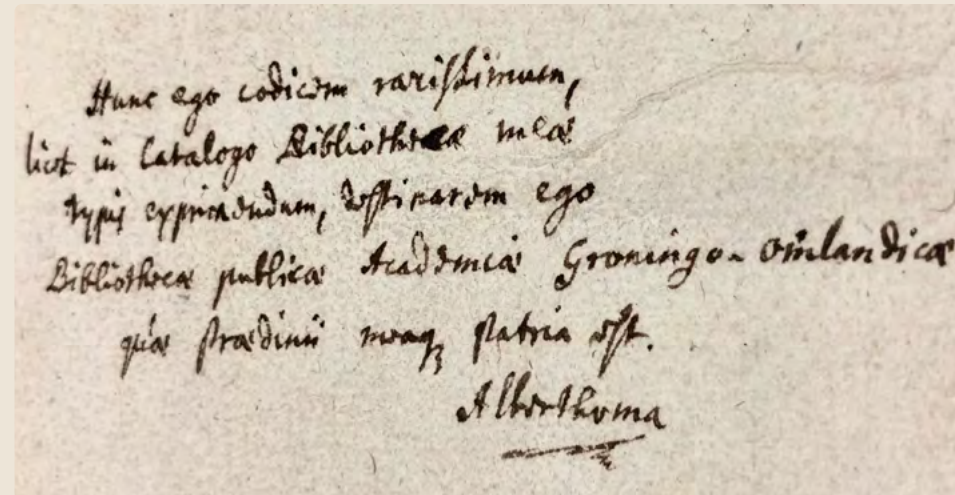 Hunc ego codicem rarissimum,
licet in Catalogo Bibliothecæ meæ
typis exprimendum, destinarem ego
Bibliothecæ publicæ Academiæ Groningo-Omlandicæ
quæ Prædinii meaq; patria est.
Alberthoma